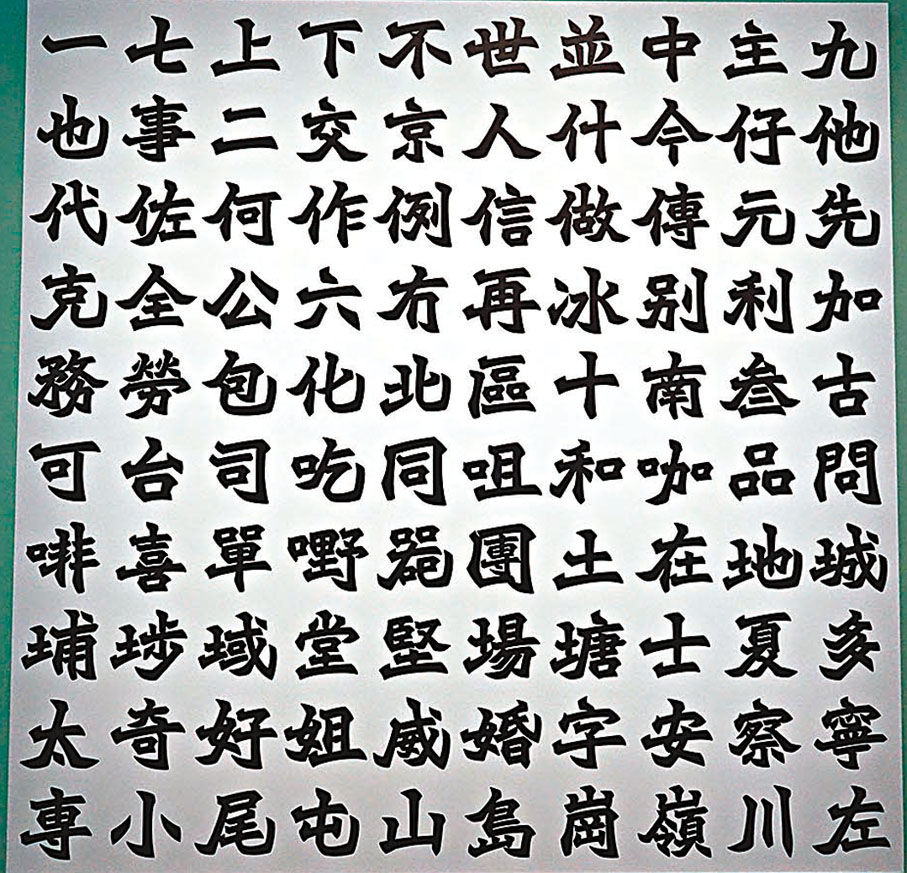 一七上下不世並中主九
也事二交京人什今仔他
代佐何作例信做傳元先
克全公六冇再冰别利加
務勞包化北區十南叁古
可台司吃同咀和咖品問
啡喜單嘢器團土在地城
埔埗域堂堅場塘士夏多
太奇好姐威婚字安察寧
専小尾屯山島崗嶺川左